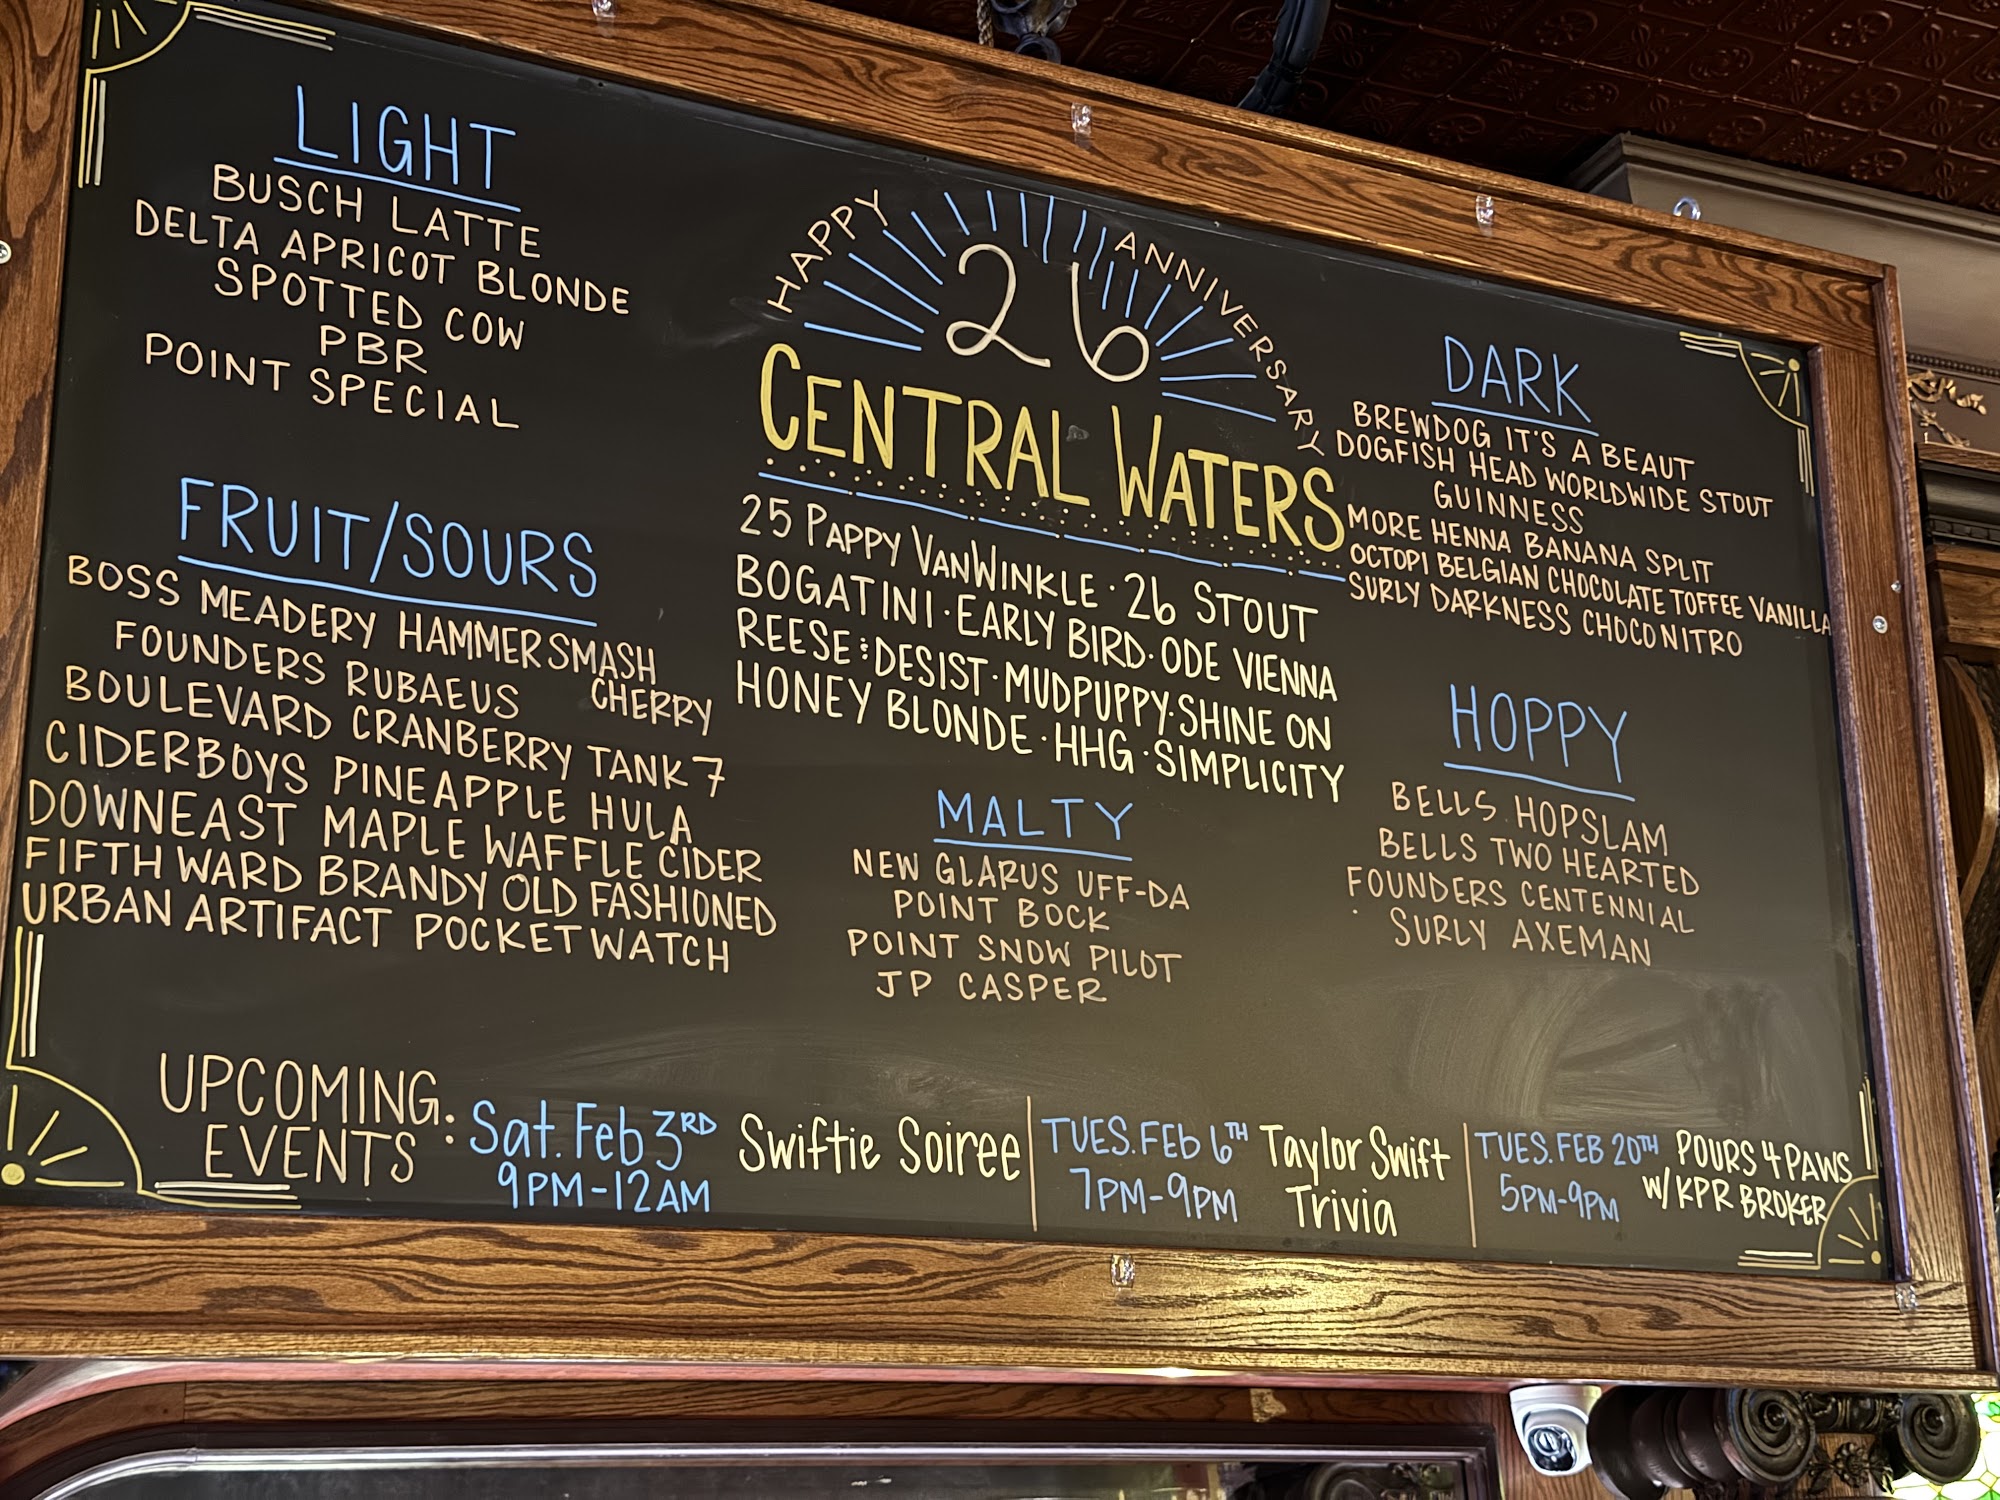 LIGHT
BUSCH LATTE
DELTA APRICOT BLONDE
SPOTTED COW
PBR
POINT SPECIAL
FRUIT/SOURS
BOSS MEADERY HAMMER SMASH
CHERRY
FOUNDERS RUBAEUS
BOULEVARD CRANBERRY TANK 7
CIDERBOYS PINEAPPLE HULA
DOWNEAST MAPLE WAFFLE CIDER
FIFTH WARD BRANDY OLD FASHIONED
URBAN ARTIFACT POCKET WATCH
HAPPY 26 ANNIVERSARY
CENTRAL WATERS
25 PAPPY VANWINKLE · 26 STOUT
BOGATINI · EARLY BIRD · ODE VIENNA
REESE & DESIST · MUDPUPPY · SHINE ON
HONEY BLONDE · HHG · SIMPLICITY
MALTY
NEW GLARUS UFF-DA
POINT BOCK
POINT SNOW PILOT
JP CASPER
DARK
BREWDOG IT'S A BEAUT
DOGFISH HEAD WORLDWIDE STOUT
GUINNESS
MORE HENNA BANANA SPLIT
OCTOPI BELGIAN CHOCOLATE TOFFEE VANILLA
SURLY DARKNESS CHOCONITRO
HOPPY
BELLS HOPSLAM
BELLS TWO HEARTED
FOUNDERS CENTENNIAL
SURLY AXEMAN
UPCOMING
EVENTS :
Sat. Feb 3RD
9PM-12AM
Swiftie Soiree
TUES. FEb 6TH
7PM-9PM
Taylor Swift
Trivia
TUES. FEB 20TH
5PM-9PM
POURS 4 PAWS
W/ KPR BROKER